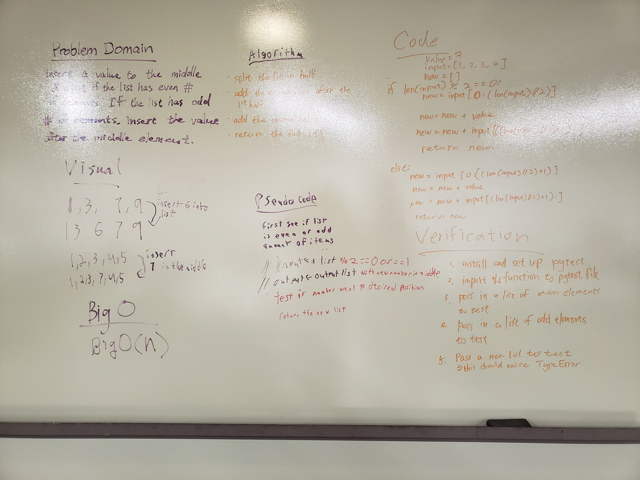 Problem Domain
insert a value to the middle
if the list has even #
If the list has odd
# of elements, insert the value
after the middle element.
Visual
1, 3, 7, 9
insert 6 into
list
1 3 6 7 9
1, 2, 3, 4, 5
insert
7 in the middle
1, 2, 3, 7, 4, 5
Big O
Big O(n)
Algorithm
split the in half
add the after the
add the
return the
Pseudo Code
first see if list
is even or odd
amount of items
list % 2 == 0 or == 1
output list with new number in middle
test if number went to desired position
return the new list
Code
value = ?
input = [1, 2, 3, 4]
new = []
if len(input) % 2 == 0:
new = input [0 : (len(input)//2)]
new = new + value
new = new + input [
return new
else:
new = input [0 : ((len(input)//2)+1)]
new = new + value
new = new + input [(len(input)//2)+1 : ]
return new
Verification
1. install and set up pytest
2. import the function to pytest file
3. pass in a list of even elements
to test
4. Pass in a list of odd elements
to test
5. Pass a non list to test
→ this should raise TypeError